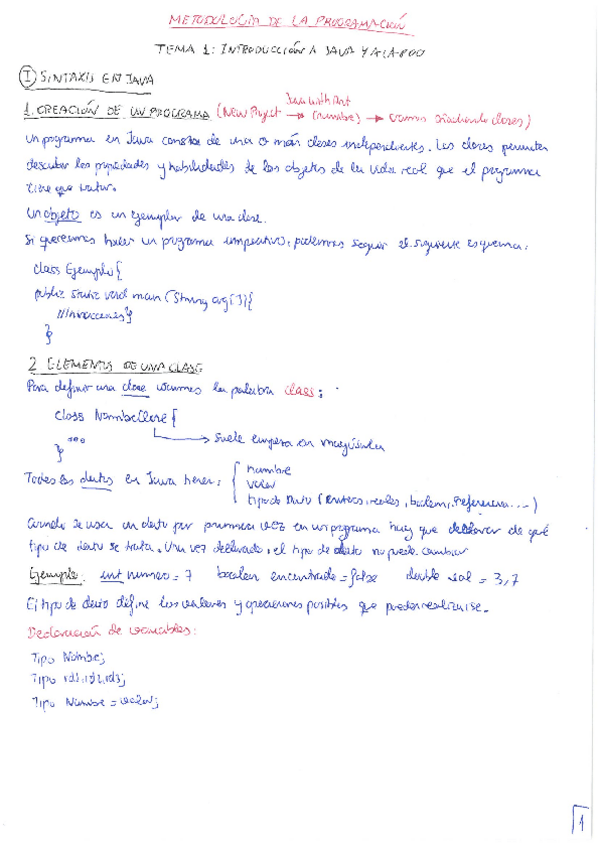 METODOLOGÍA DE LA PROGRAMACIÓN
TEMA 1: INTRODUCCIÓN A JAVA Y A LA POO
I SINTAXIS EN JAVA
Java with Ant
1. CREACIÓN DE UN PROGRAMA (New Project → (nombre) → vamos añadiendo clases)
Un programa en Java consta de una o más clases independientes. Las clases permiten
describir las propiedades y habilidades de los objetos de la vida real que el programa
tiene que tratar.
Un objeto es un ejemplar de una clase.
Si queremos hacer un programa imperativo, podemos seguir el siguiente esquema:
class Ejemplo {
public static void main (String arg[]){
//Instrucciones}
}
2 ELEMENTOS DE UNA CLASE
Para definir una clase usamos la palabra class:
class NombreClase {
→ Suele empezar en mayúscula
...
}
Todos los datos en Java tienen: { nombre
valor
tipo de dato (enteros, reales, boolean, referencia...)
Cuando se usa un dato por primera vez en un programa hay que declarar de qué
tipo de dato se trata. Una vez declarado, el tipo de dato no puede cambiar
Ejemplo: int numero = 7 boolean encontrado = false double real = 3,7
El tipo de dato define los valores y operaciones posibles que puedan realizarse.
Declaración de variables:
Tipo Nombre;
Tipo id1, id2, id3;
Tipo Nombre = valor;
1